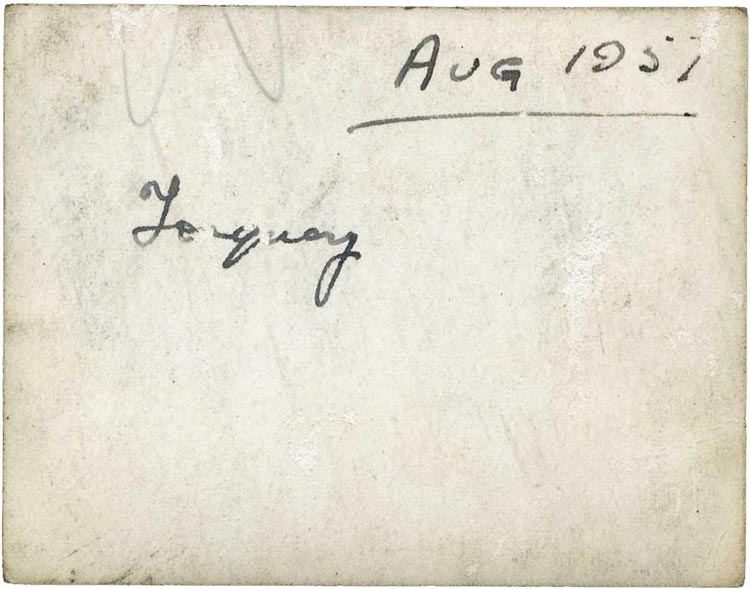 AUG 1957
Torquay